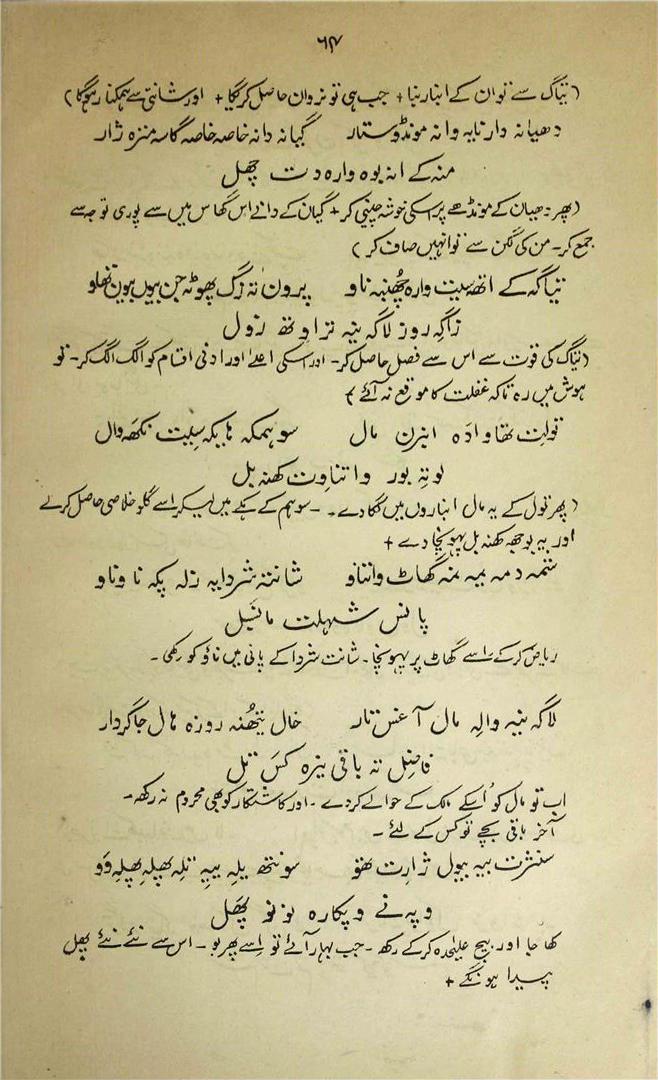 ۶۴
( تیاگ سے توان کے انبار بنا + جب ہی تو نروان حاصل کریگا + اور شانتی سے ہمکنار ہوگا )
دھیانہ دارنایہ وانہ مونڈوستار گیانہ دانہ خاصہ خاصہ گاسہ منزہ ژار
منہ کے انہ پوہ وارہ دت چھل
( پھر دھیان کے مونڈھے پر اسکی خوشہ چینی کر + گیان کے دانے اس گھاس میں سے پوری توجہ سے
جمع کر - من کی لگن سے توانہیں صاف کر )
تیاگہ کے اتھ سیت وارہ چھنبہ ناو پرون نہ زگ پھوٹہ جن بیون بیون تھاو
زاگہ روز لاگہ ینیہ تراوتھ زول
( تیاگ کی قوت سے اس سے فصل حاصل کر - اور اسکی اعلےٰ اور ادنیٰ اقسام کو الگ الگ کر - تو
ہوش میں رہ تاکہ غفلت کا موقع نہ آئے )
تولت تھاو ادہ انبرن مال سوہمکہ ہایکہ سیت نکھہ وال
لوتہ بور واتناوت کھنہ بل
( پھر تول کے یہ مال انباروں میں لگا دے - سوہم کے لیکر اسے گلو خلاصی حاصل کرلے
اور یہ بوجھ کھنہ بل پہونچا دے +
شمہ دمہ یمیہ منہ گھاٹ واتناو شانتہ شردایہ زلہ پکہ ناوناو
پانس شہلت مانیل
ریاض کرکے اسے گھاٹ پر پہونچا - شانت شردا کے پانی میں ناؤ کو رکھی -
لاگہ ینیہ والہ مال آغس تار خال نیتھنہ روزہ ہال جاگردار
فاضل تہ باقی ینزہ کس تل
اب تو مال کو اُسکے مالک کے حوالے کردے - اور کاشتکار کو بھی محروم نہ رکھ -
آخر باقی بچے تو کس کے لئے -
سنژت بیہ بیول ژارت تھو سونتھ یلہ ییہ تلہ پھپلہ پھپلہ وو
وپہ نے وپکارہ نو نو پھل
کھا جا اور بیج علیٰحدہ کرکے رکھ - جب بہار آئے تو اسے پھر بو - اس سے نئے نئے پھل
پیدا ہونگے +